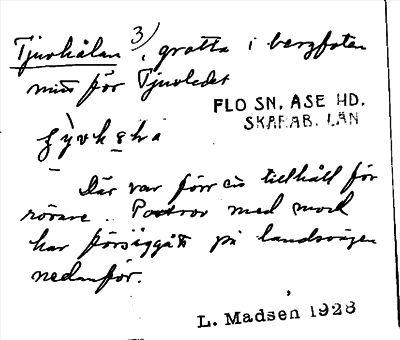 Tjuvhålan 3), grotta i bergfoten
nära för Tjuvledet
FLO SN. ÅSE HD.
SKARAB. LÄN
Där var förr ett tillhåll för
rövare. Postrov med mord
har försiggått på landsvägen
nedanför.
L. Madsen 1928